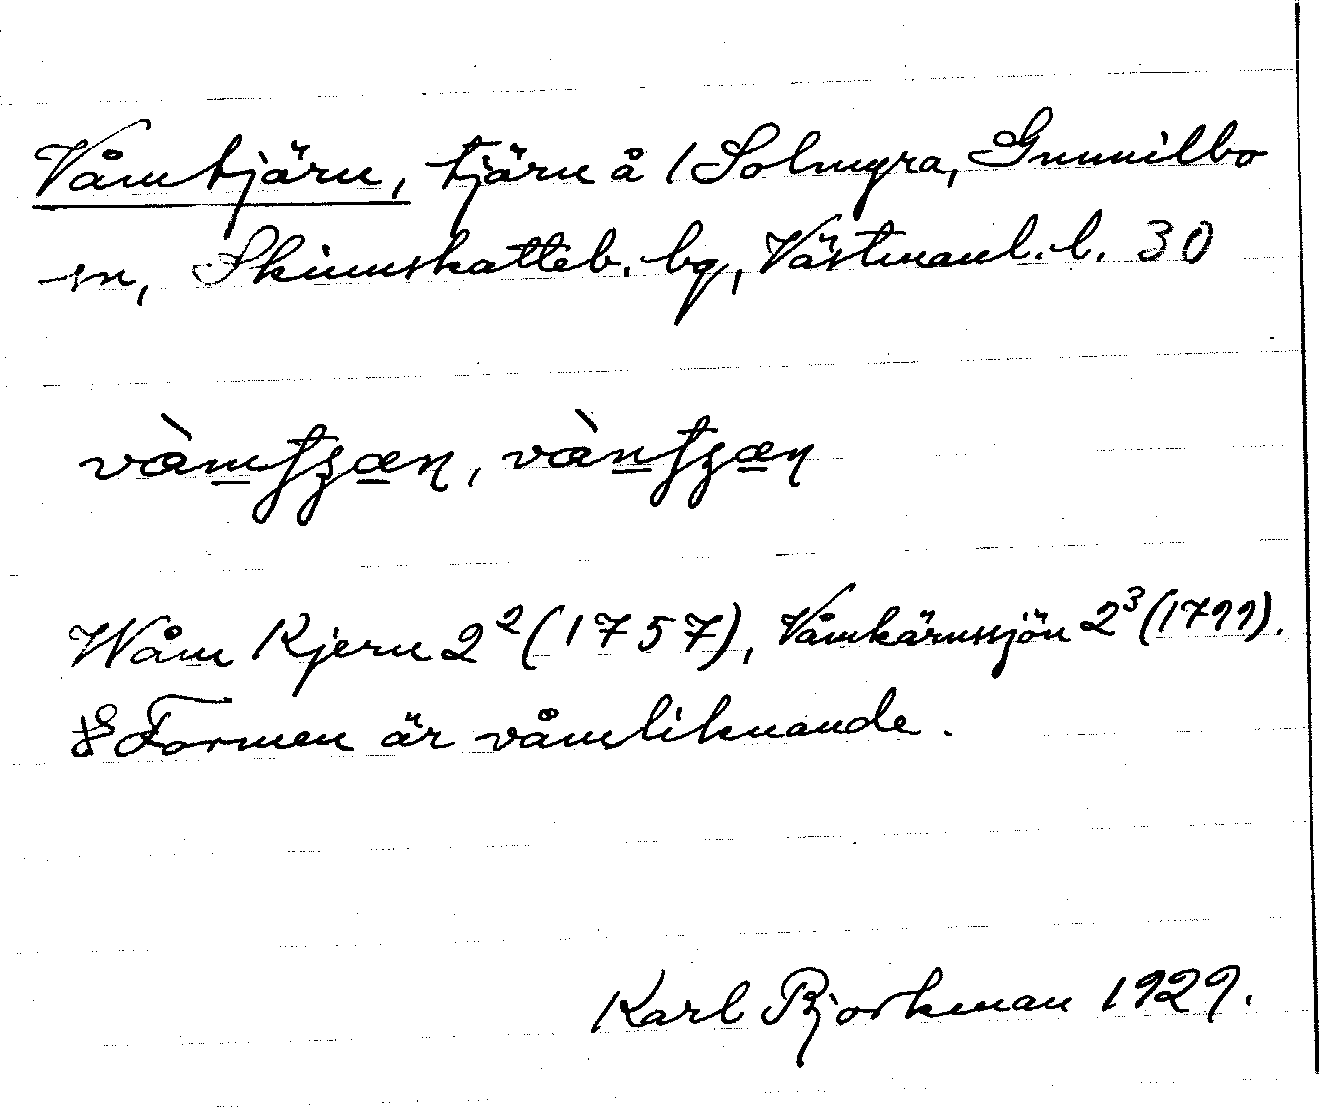 Våmtjärn, tjärn å 1 Solmyra, Gunnilbo
sn, Skinnskatteb. bg, Västmanl. l. 30
Wåm Kjern 2² (1757), Våmkärnssjön 2³ (1799).
Formen är våmliknande.
Karl Bjorkman 1929.